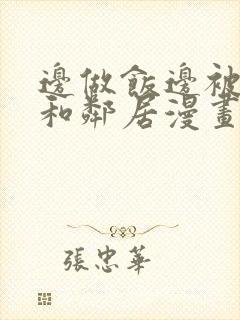 邊做飯邊被
和鄰居漫畫
張忠華